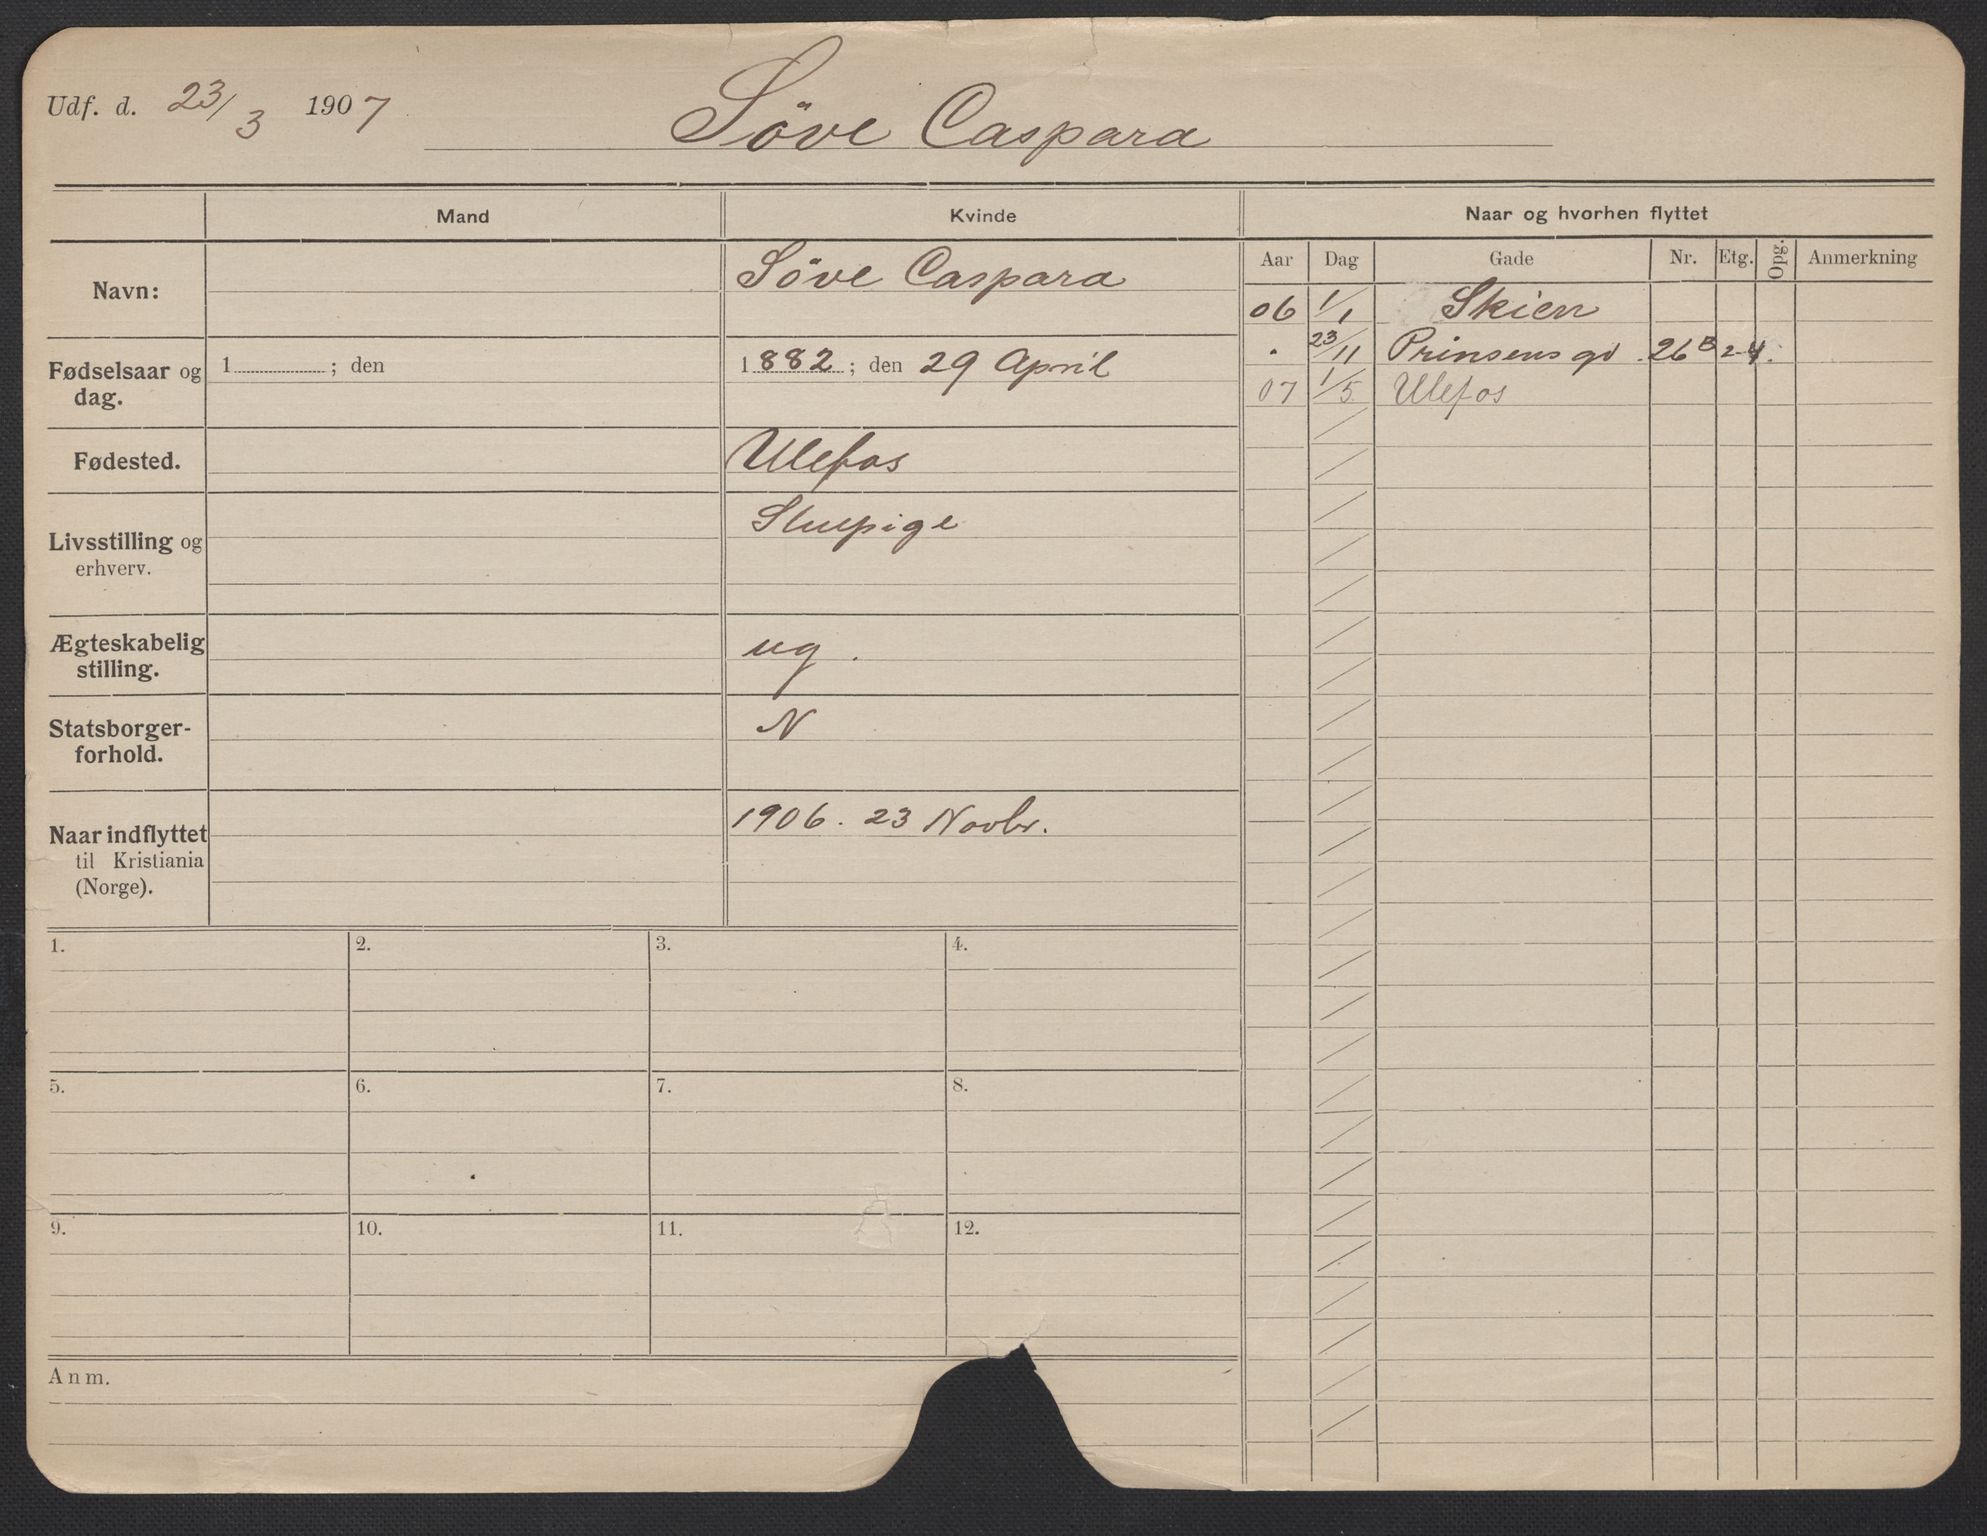 Udf. d. 23/3 1907
Söve Caspara
Mand
Kvinde
Naar og hvorhen flyttet
Aar Dag Gade Nr. Etg. Opg. Anmerkning
Navn:
Söve Caspara
Fødselsaar og
dag.
1 ; den
1882 ; den 29 April
Fødested.
Ulefos
Livsstilling og
erhverv.
Stuepige
Ægteskabelig
stilling.
ug.
Statsborger-
forhold.
N
Naar indflyttet
til Kristiania
(Norge).
1906. 23 Novbr.
06 1/1 Skien
" 23/11 Prinsensgd. 26B 2-4.
07 1/5 Ulefos
1. 2. 3. 4.
5. 6. 7. 8.
9. 10. 11. 12.
Anm.